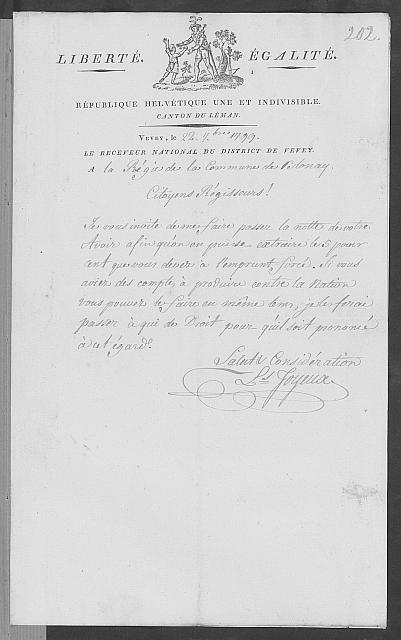 202.
LIBERTÉ. ÉGALITÉ.
RÉPUBLIQUE HELVÉTIQUE UNE ET INDIVISIBLE.
CANTON DU LÉMAN.
VEVEY, le 22. 7bre 1799.
LE RECEVEUR NATIONAL DU DISTRICT DE VEVEY.
A la Régie de la Commune de Blonay.
Citoyens Régisseurs!
Je vous invite de me faire passer la notte de votre
Avoir afin qu'on en puisse extraire le 5 pour
cent que vous devez à l'emprunt forcé. Si vous
aviez des comptes à produire contre la Nation
vous pouvez le faire en même tems, je les ferai
passer à qui de Droit pour qu'il soit prononcé
à cet égard.
Salut & Considération
Ls. Joyeux